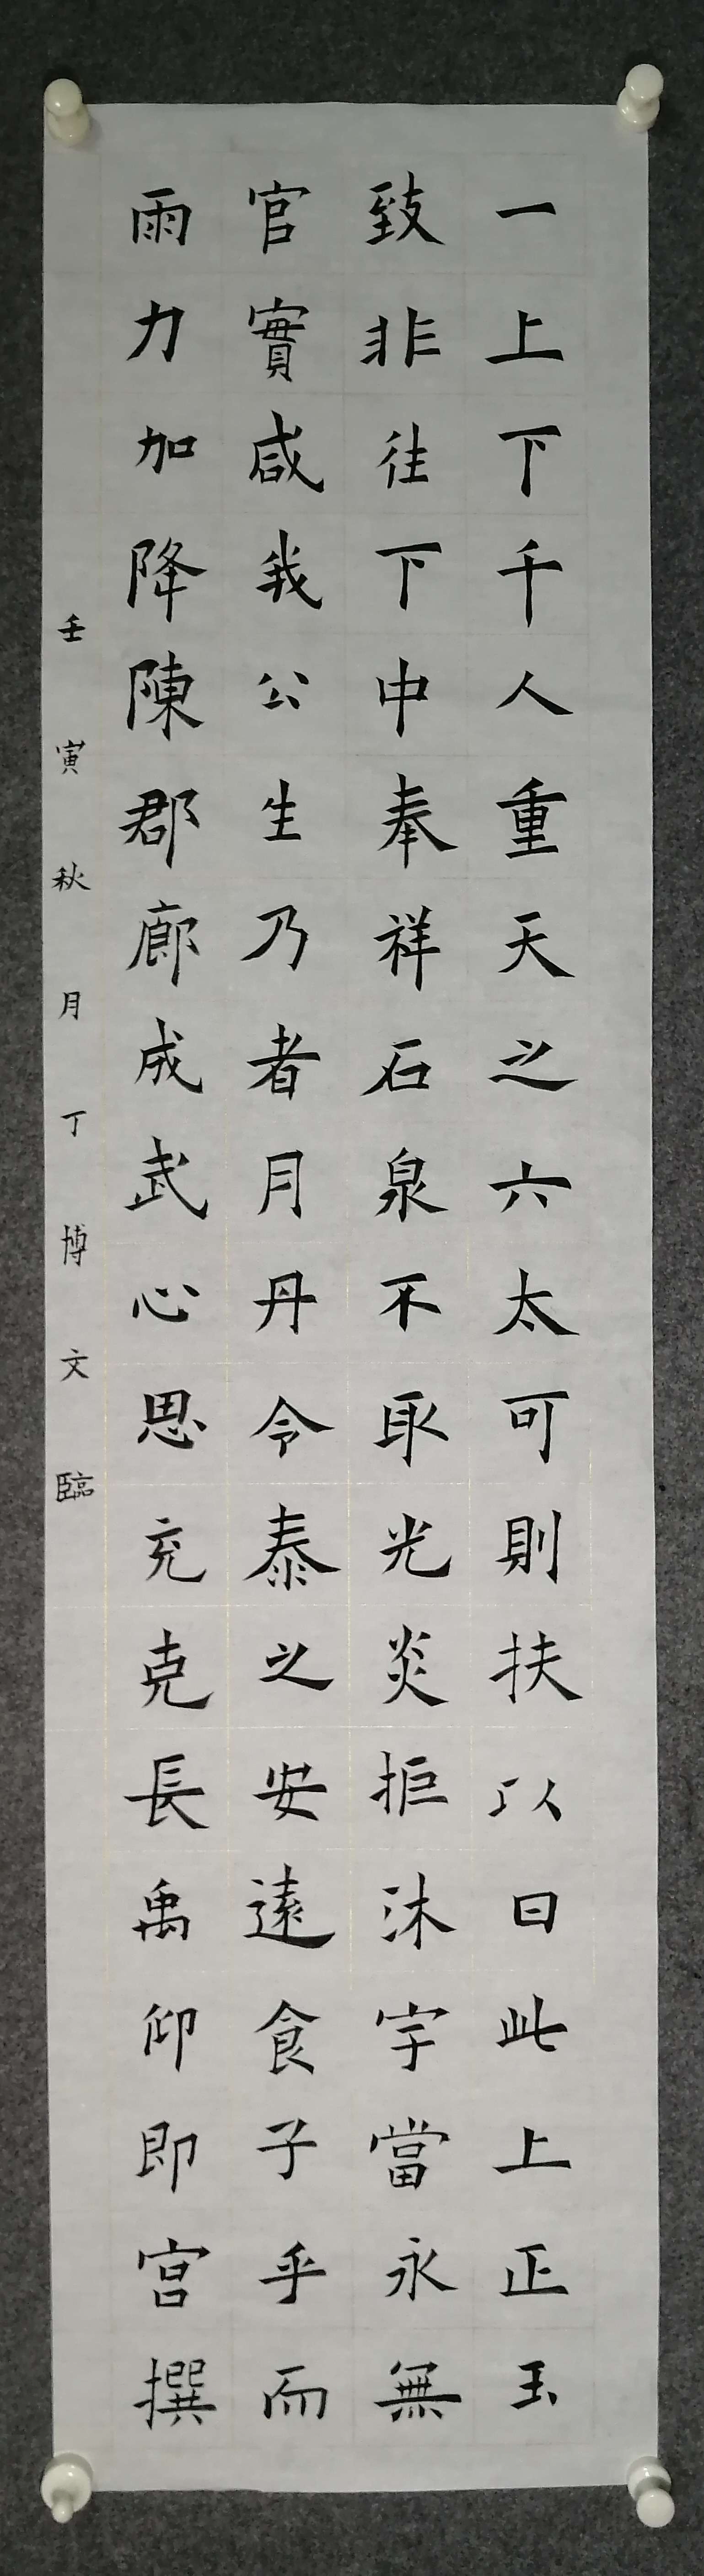 一上下千人重天之六太可則扶以日此上正玉
致非往下中奉祥石泉不取光炎拒沐字當永無
官實咸我公生乃者月丹令泰之安遠食子乎而
雨力加降陳郡廊成武心思充克長禹仰即宮撰
壬寅秋月丁博文臨